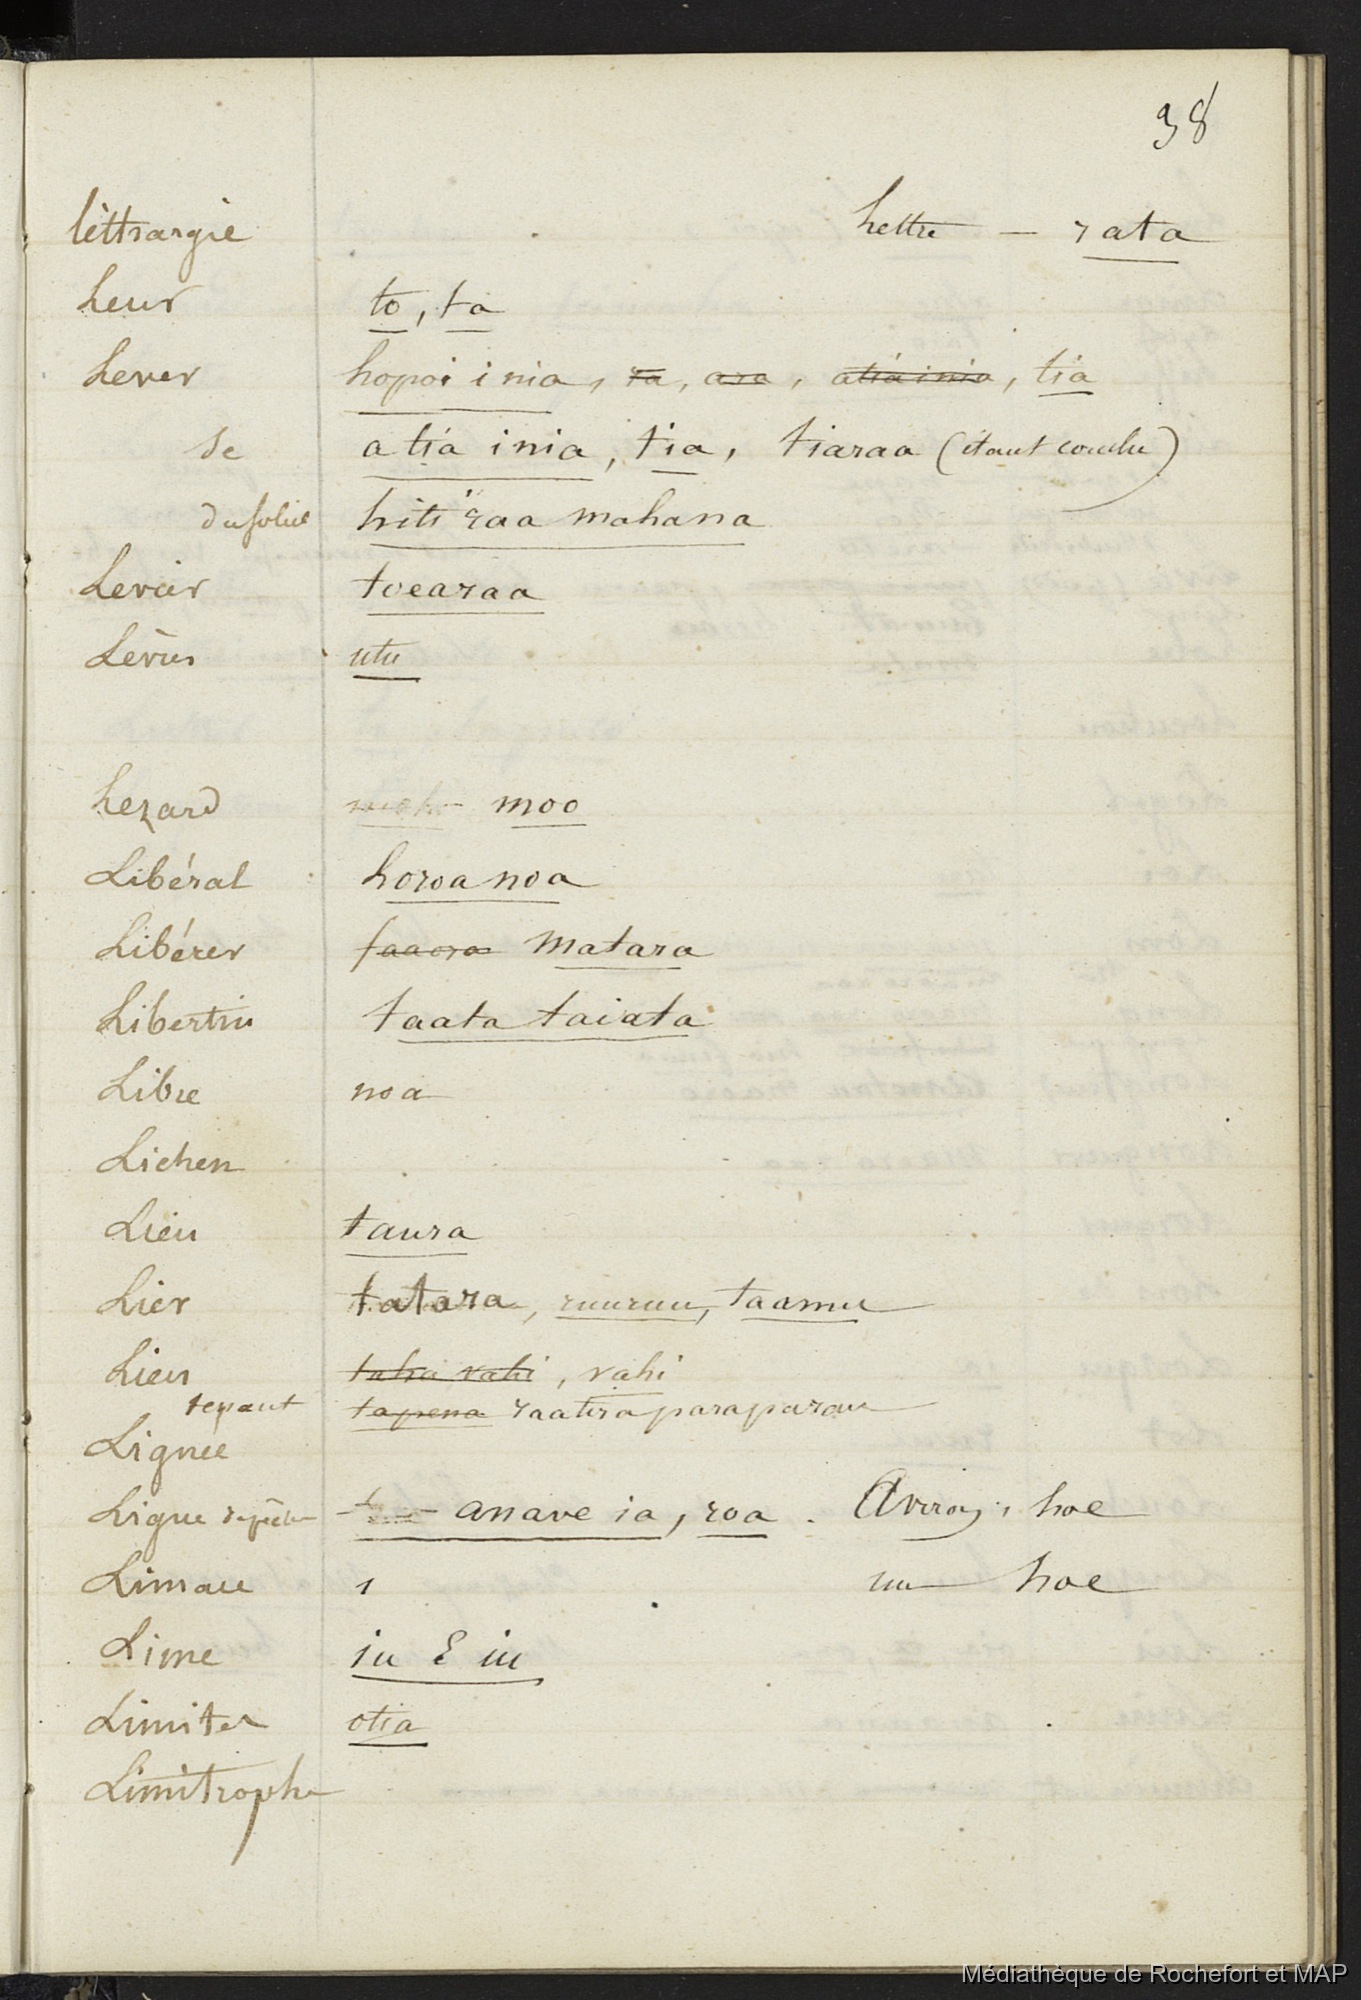 38
lèttrargie Lettre — rata
Leur to, ta
Lever hopoi i nia, ra, ara, atia inia, tia
se atia inia, tia, tiaraa (étant couché)
du soleil hiti raa mahana
Levier toearaa
Lèvres utu
Lezard moo
Libéral horoa noa
Libérer faaora matara
Libertin taata taiata
Libre noa
Lichen
Lieu taura
Lier tatara, ruuruu, taamu
Lieu taha vahi, vahi
tenant tapena raatira paraparau
Lignée
Ligne de pêche anave ia, roa. Aviron, hoe
hoe
Lime iu & iu
Limiter otia
Limitrophe
Médiathèque de Rochefort et MAP